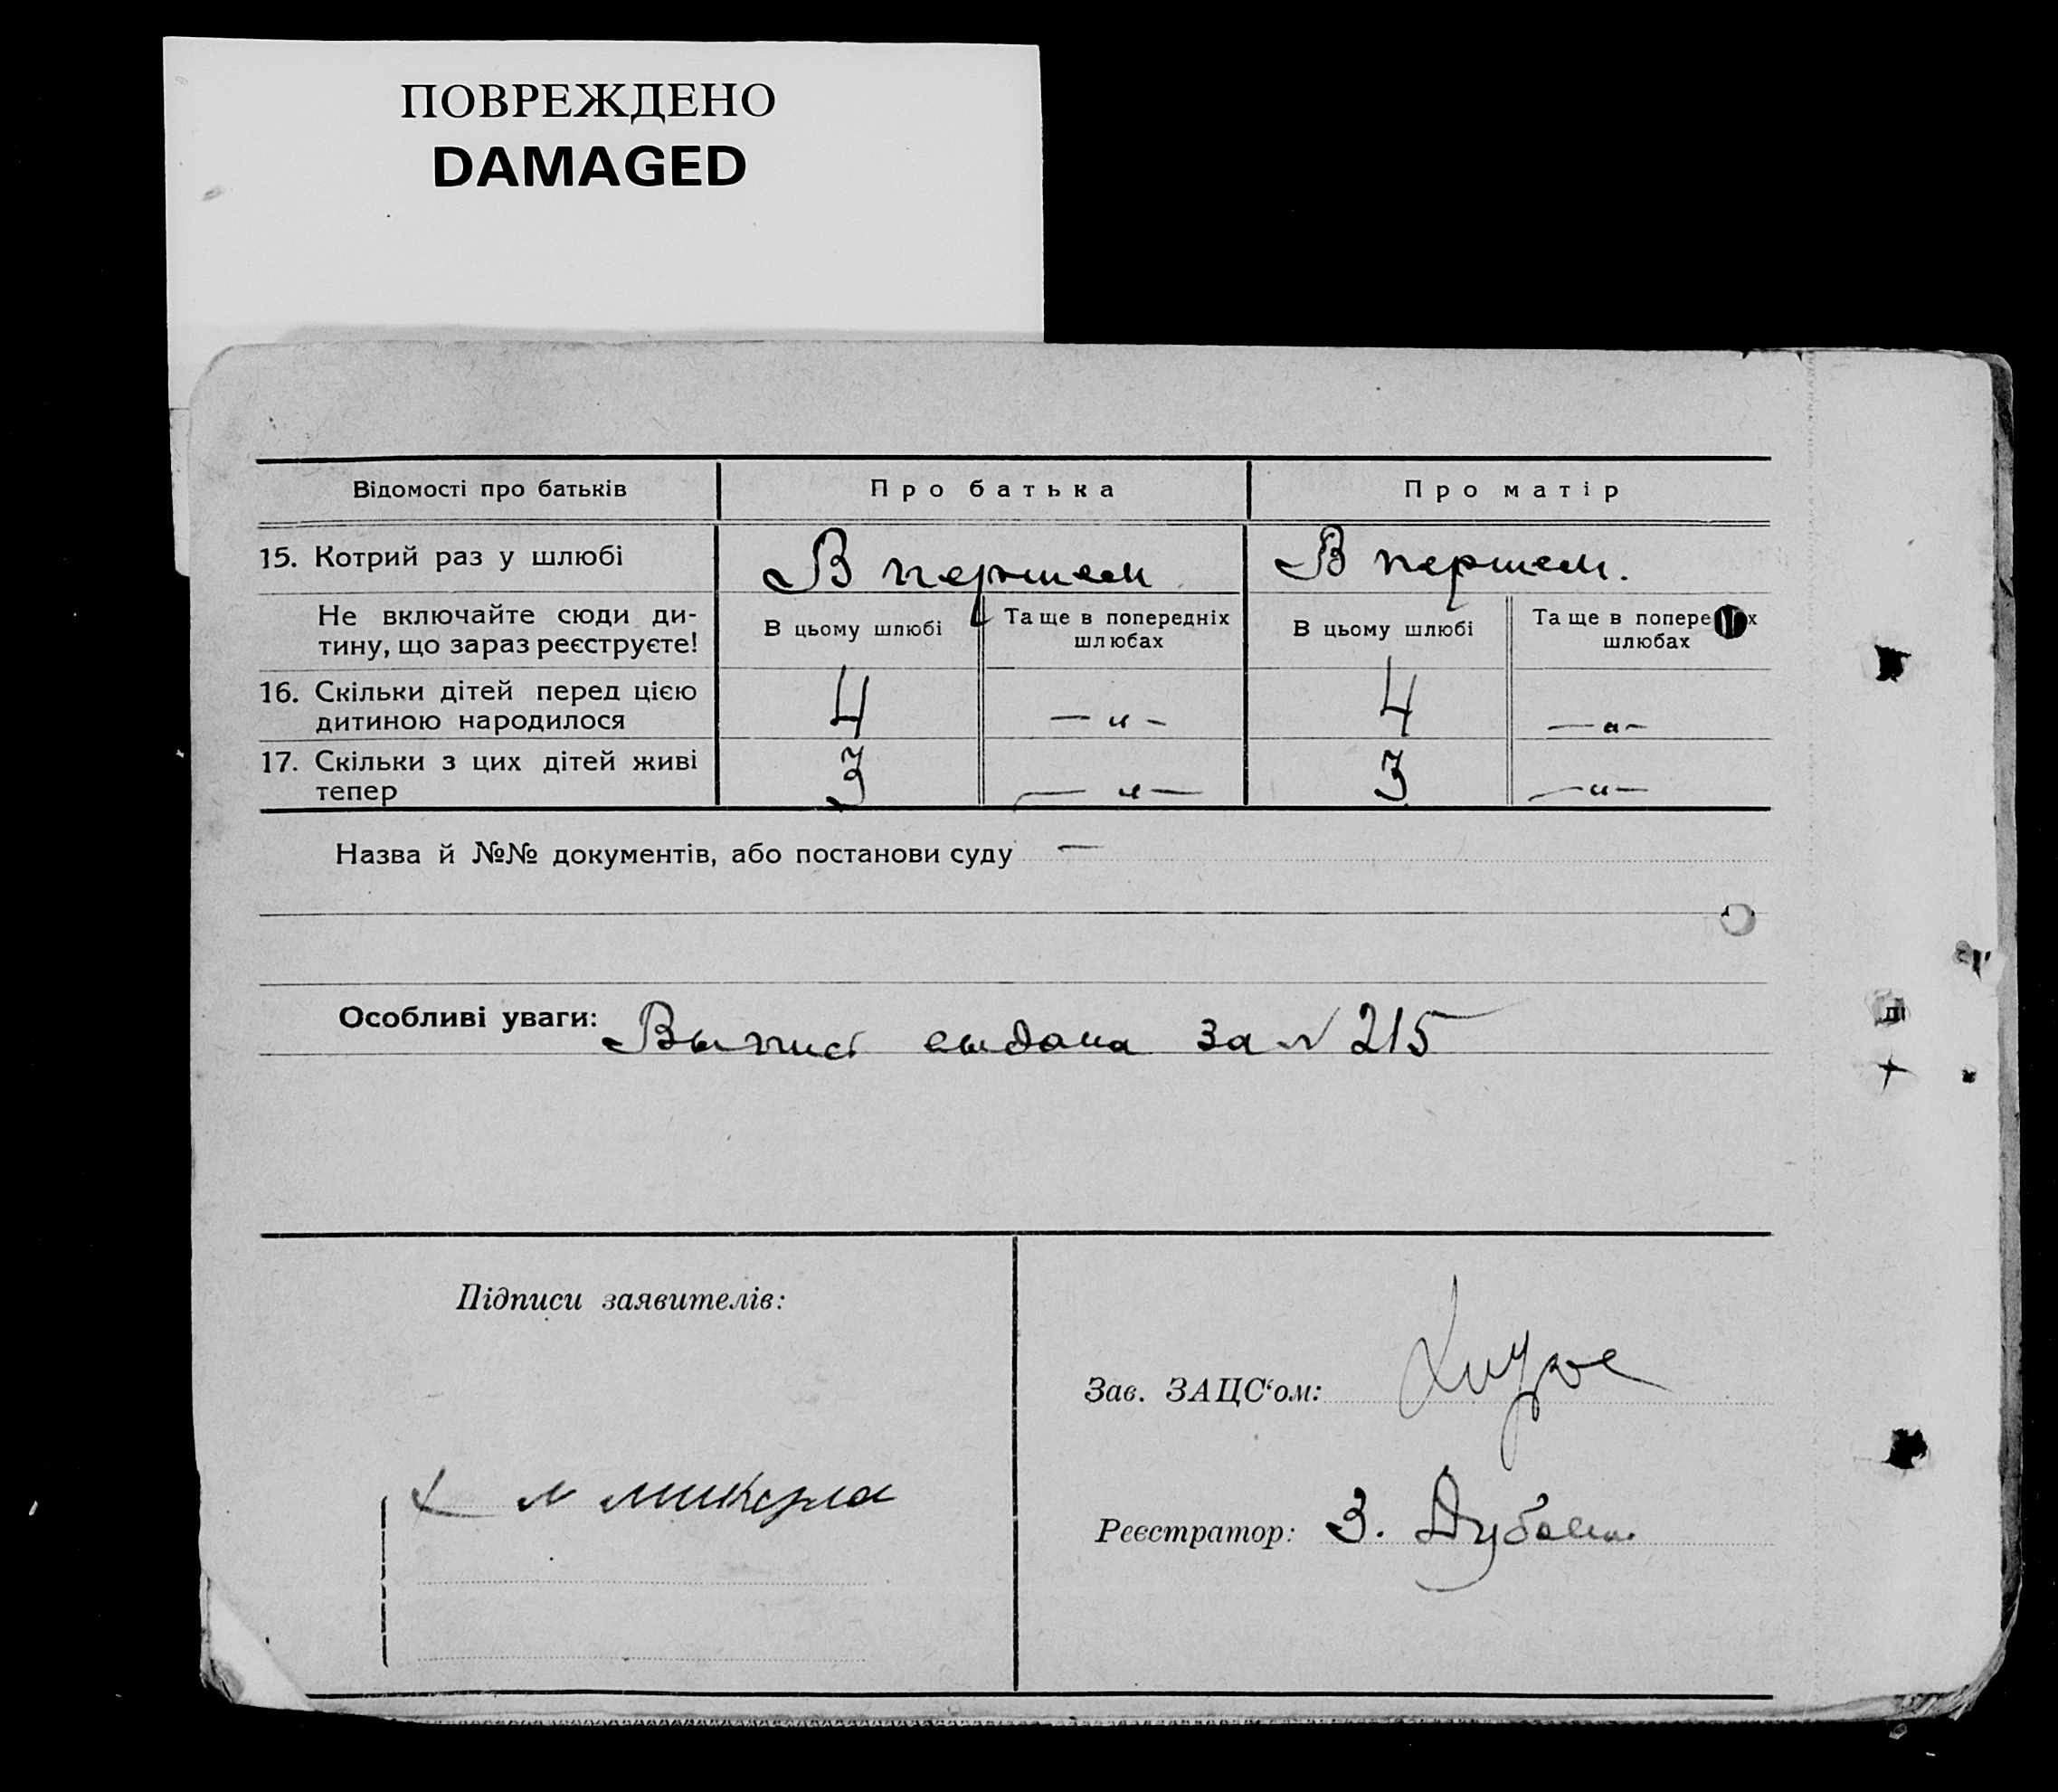 ПОВРЕЖДЕНО
DAMAGED
Відомості про батьків
Про батька
Про матір
15. Котрий раз у шлюбі
В першем
В першем.
Не включайте сюди ди-
тину, що зараз реєструєте!
В цьому шлюбі
Та ще в попередніх
шлюбах
В цьому шлюбі
Та ще в попере х
шлюбах
16. Скільки дітей перед цією
дитиною народилося
4
— „ —
4
— „ —
17. Скільки з цих дітей живі
тепер
3
— „ —
3
— „ —
Назва й №№ документів, або постанови суду —
Особливі уваги: Выпись выдана за № 215
Підписи заявителів:
Зав. ЗАЦС‘ом:
Реєстратор: З.